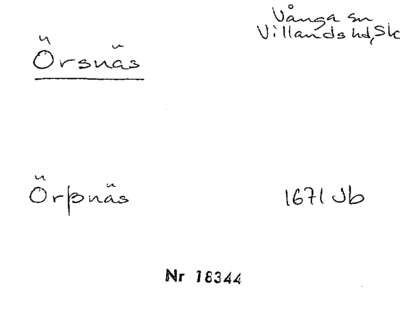 Örsnäs
Vånga sn
Villands hd, Sk
Örþnäs
1671 Jb
Nr 18344